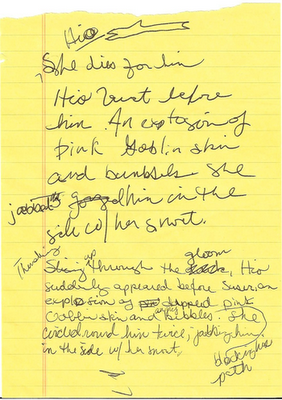 Hio
She dies for him
Hio burst before
him. An explosion of
pink Goblin skin
and bubbles she
jabbed him in the
side w/ her snout.
Thundering
up through the gloom, Hio
suddenly appeared before Susan, an
explosion of pink
Goblin skin and angry bubbles. She
circled round him twice, jabbing him
in the side w/ her snout,
blocking his
path